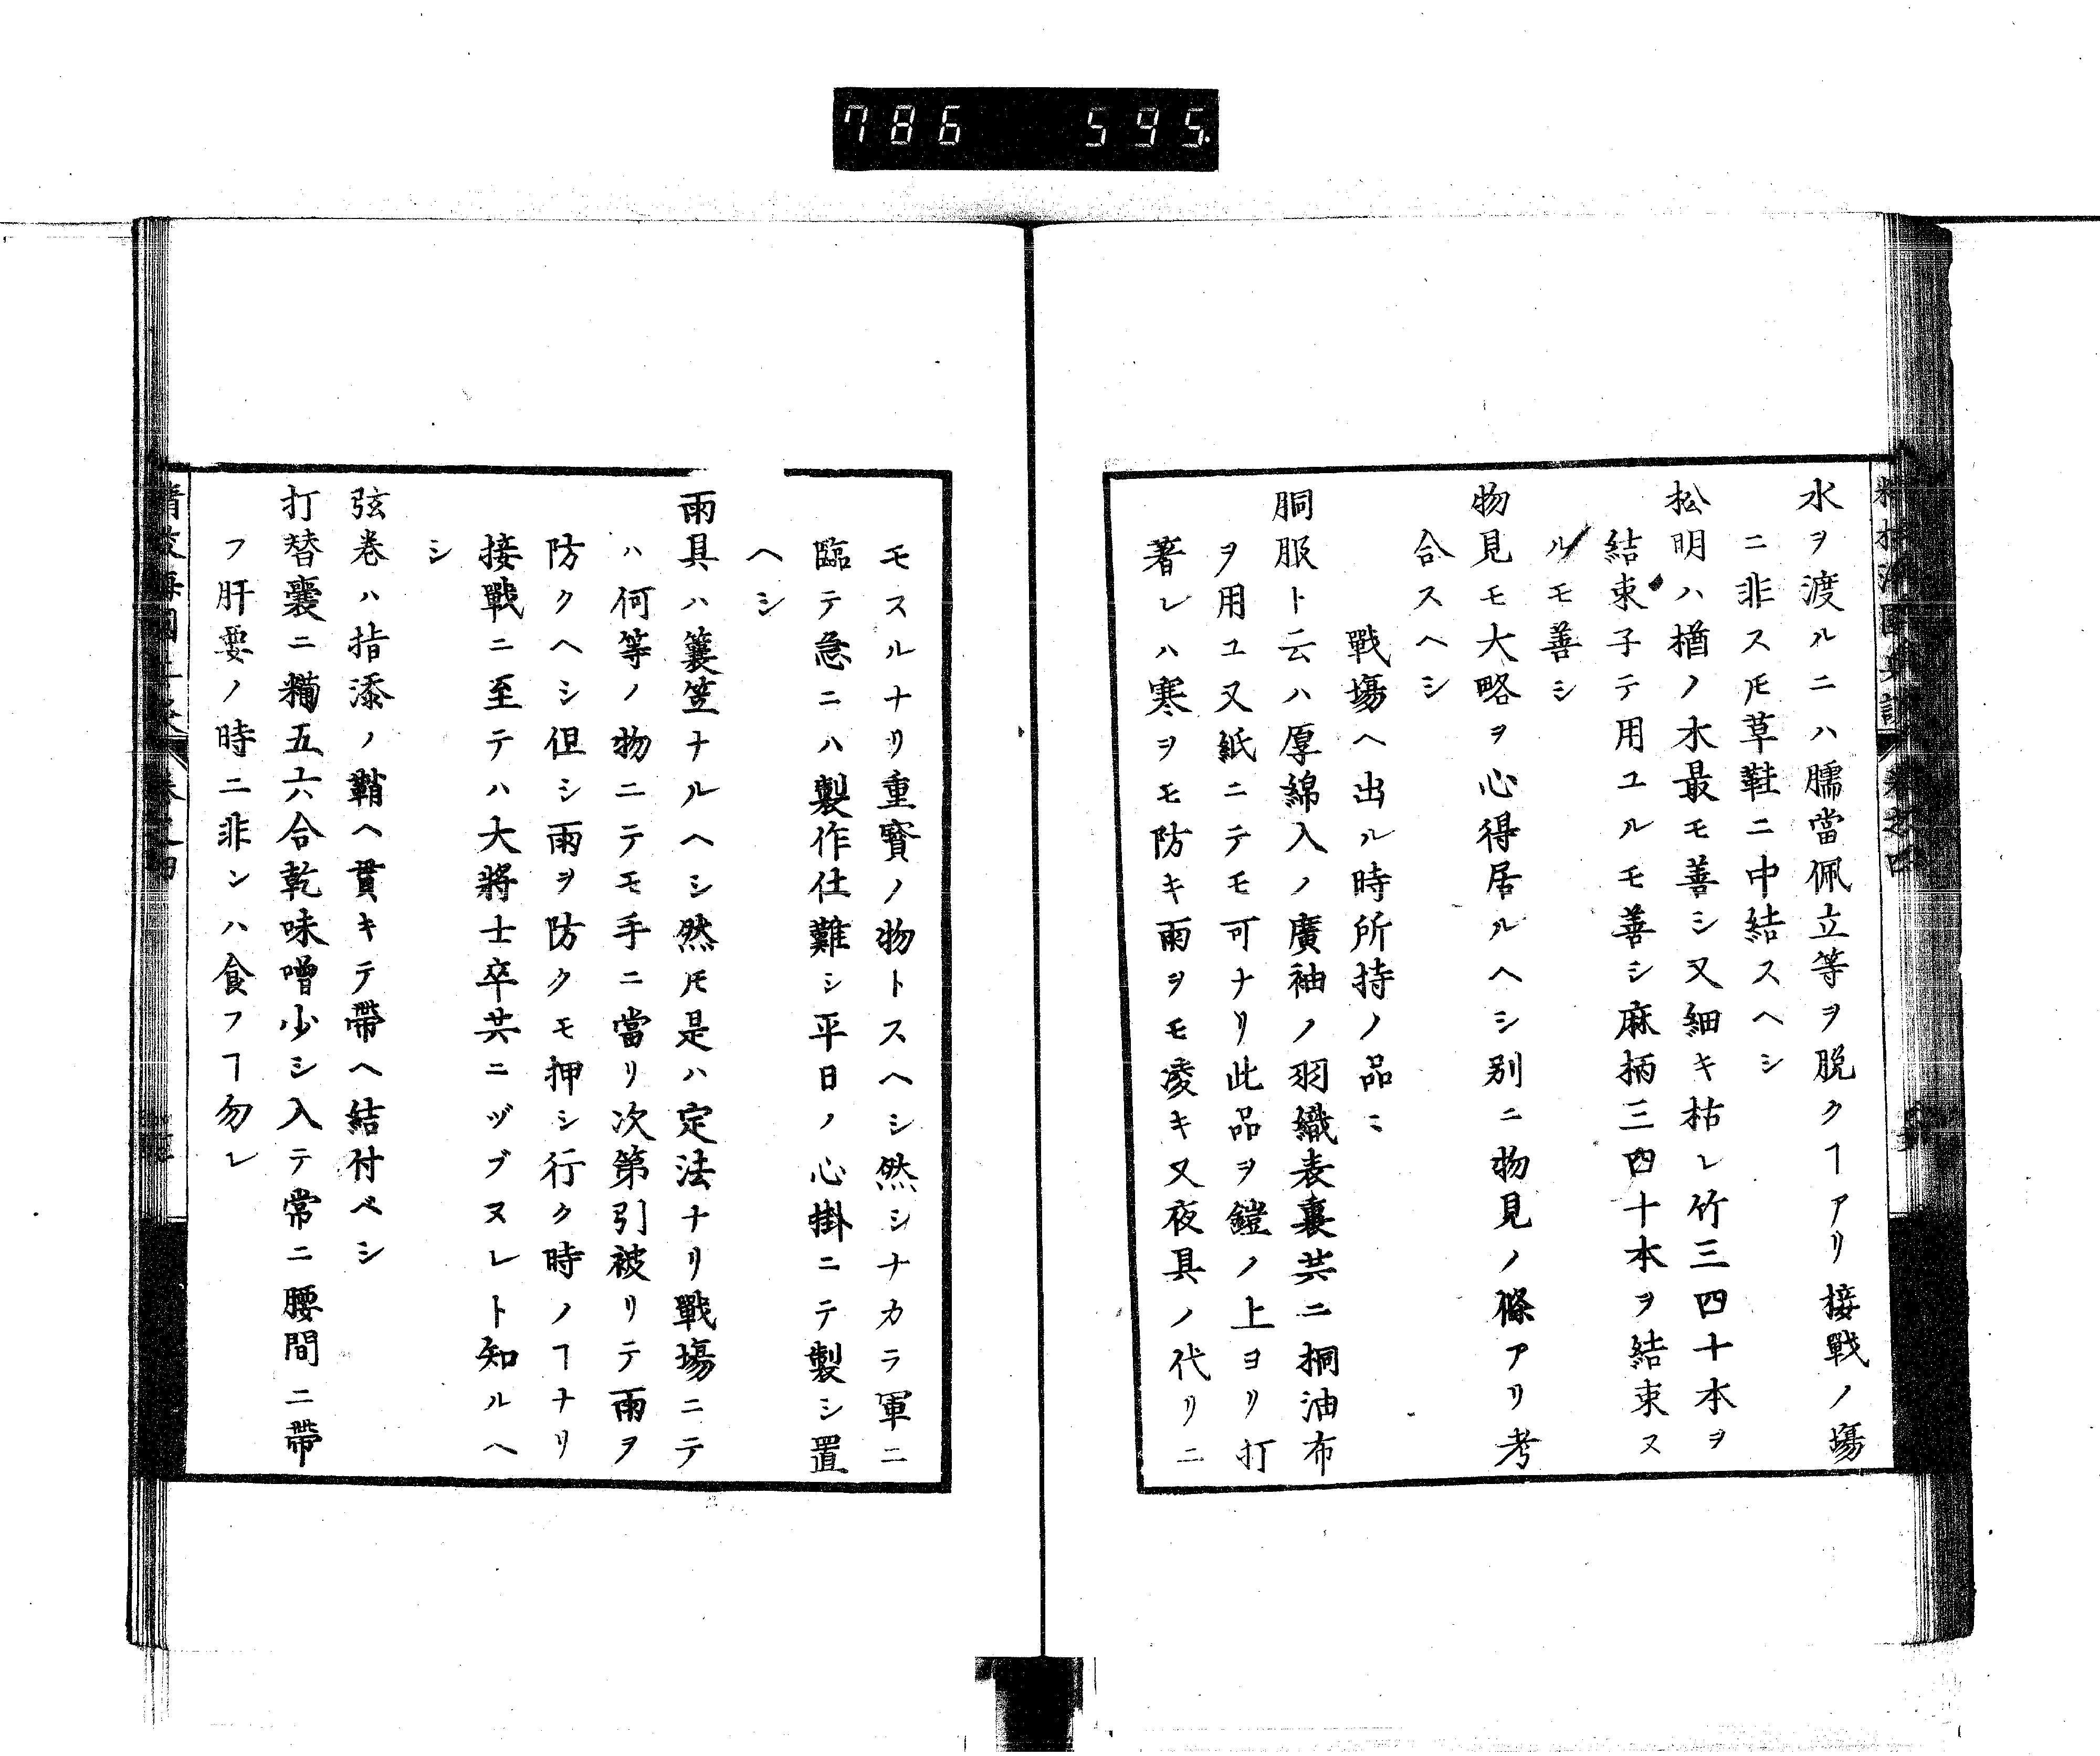 786 595.
水ヲ渡ルニハ臑當佩立等ヲ脱クヿアリ接戰ノ塲
ニ非ス𪜈草鞋ニ中結スヘシ
松明ハ楢ノ木最モ善シ又細キ枯レ竹三四十本ヲ
結束子テ用ユルモ善シ麻柄三四十本ヲ結束ス
ルモ善シ
物見モ大略ヲ心得居ルヘシ別ニ物見ノ條アリ考
合スヘシ
戰塲ヘ出ル時所持ノ品〻
胴服ト云ハ厚綿入ノ廣袖ノ羽織表裏共ニ桐油布
ヲ用ユ又紙ニテモ可ナリ此品ヲ鎧ノ上ヨリ打
著レハ寒ヲモ防キ雨ヲモ凌キ又夜具ノ代リニ
モスルナリ重寳ノ物トスヘシ然シナカラ軍ニ
臨テ急ニハ製作仕難シ平日ノ心掛ニテ製シ置
ヘシ
雨具ハ簑笠ナルヘシ然𪜈是ハ定法ナリ戰塲ニテ
ハ何等ノ物ニテモ手ニ當リ次第引被リテ雨ヲ
防クヘシ但シ雨ヲ防クモ押シ行ク時ノヿナリ
接戰ニ至テハ大將士卒共ニヅブヌレト知ルヘ
シ
弦卷ハ指添ノ鞘ヘ貫キテ帶ヘ結付ベシ
打替嚢ニ糒五六合乾味噌少シ入テ常ニ腰間ニ帶
フ肝要ノ時ニ非ンハ食フヿ勿レ